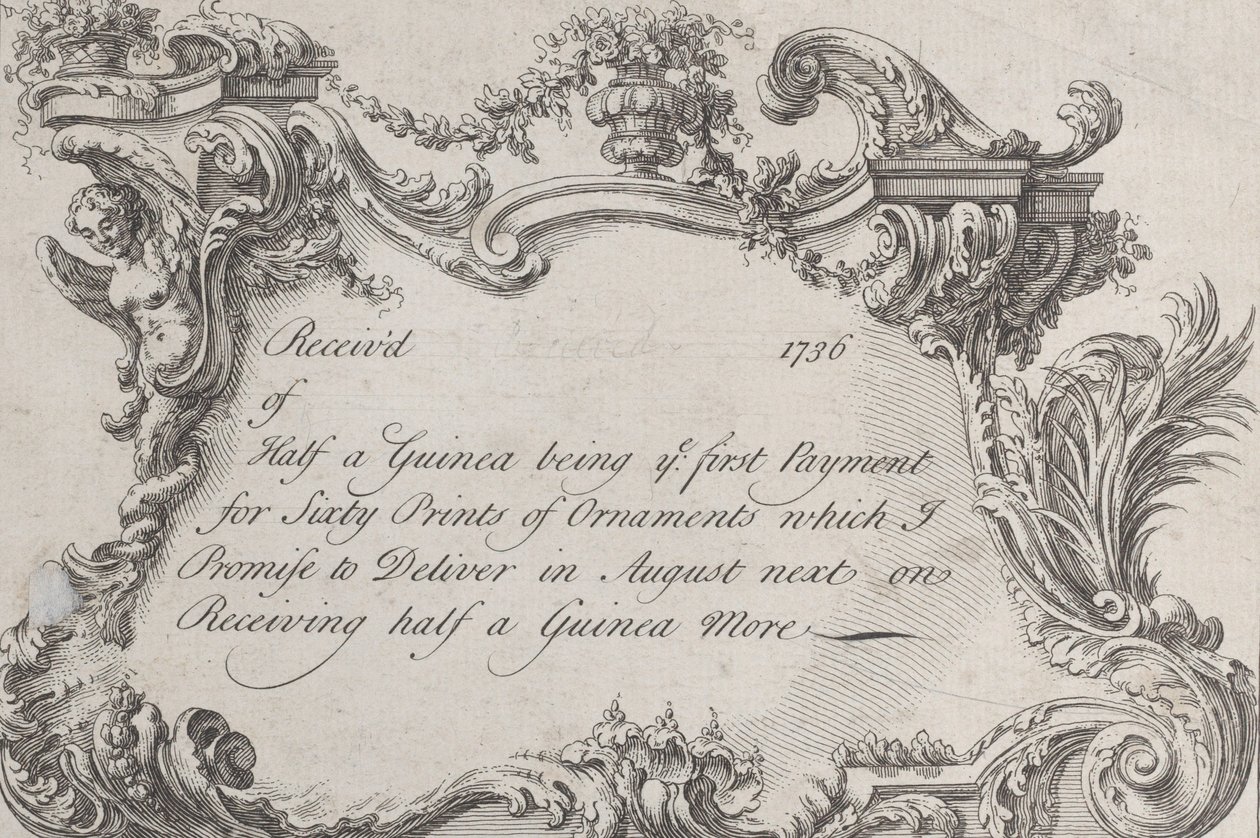 Receiv'd 1736
of
Half a Guinea being yᵉ. first Payment
for Sixty Prints of Ornaments which I
Promiſe to Deliver in August next on
Receiving half a Guinea More